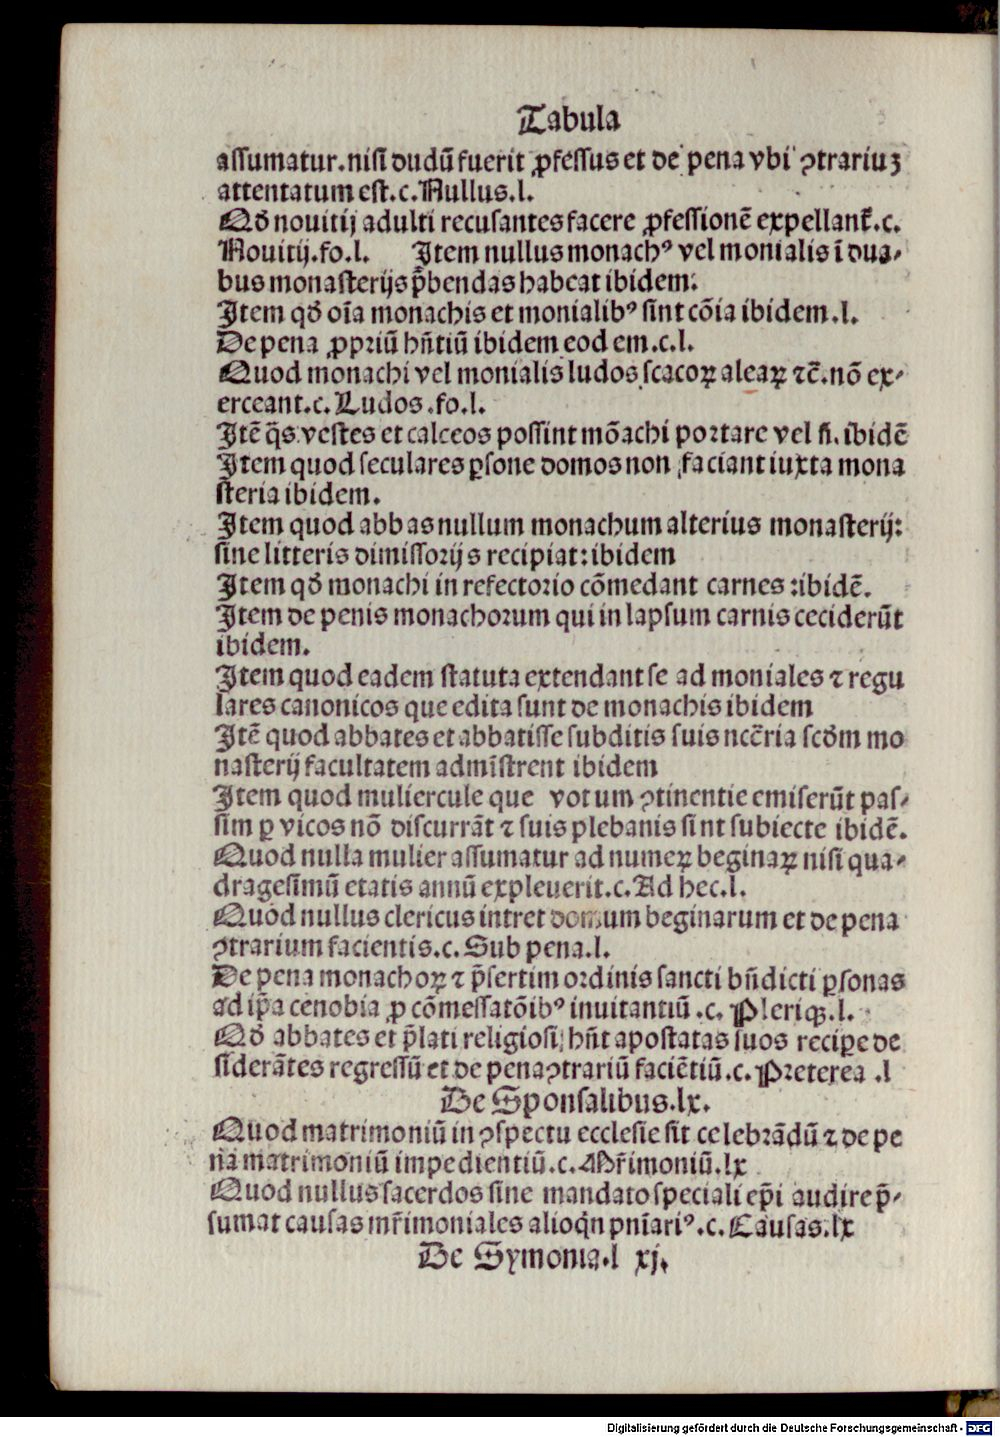 Tabula
assumatur.nisi dudū fuerit ꝓfessus et de pena vbi ꝯtrariuꝫ
attentatum est.c.Nullus.l.
Qđ nouitij adulti recusantes facere ꝓfessionē expellant̃.c.
Nouitij.fo.l. Item nullus monachꝰ vel monialis ī dua⸗
bus monasterijs p̄bendas habeat ibidem:
Item qđ oīa monachis et monialibꝰ sint cōia ibidem.l.
De pena ꝓpriū hn̄tiū ibidem eod em.c.l.
Quod monachi vel monialis ludos scacoꝝ aleaꝝ ⁊c̄.nō ex⸗
erceant.c.Ludos.fo.l.
Itē q̄s vestes et calceos possint mōachi portare vel n̄.ibidē
Item quod seculares ꝑsone domos non faciant iuxta mona
steria ibidem.
Item quod abbas nullum monachum alterius monasterij:
sine litteris dimissorijs recipiat:ibidem
Item qđ monachi in refectorio cōmedant carnes:ibidē.
Item de penis monachorum qui in lapsum carnis ceciderūt
ibidem.
Item quod eadem statuta extendant se ad moniales ⁊ regu
lares canonicos que edita sunt de monachis ibidem
Itē quod abbates et abbatisse subditis suis nccr̄ia scđm mo
nasterij facultatem admīstrent ibidem
Item quod muliercule que vot um ꝯtinentie emiserūt pas⸗
sim ꝑ vicos nō discurrāt ⁊ suis plebanis sint subiecte ibidē.
Quod nulla mulier assumatur ad numeꝝ beginaꝝ nisi qua⸗
dragesimū etatis annū expleuerit.c.Ad hec.l.
Quod nullus clericus intret domum beginarum et de pena
ꝯtrarium facientis.c.Sub pena.l.
De pena monachoꝝ ⁊ p̄sertim ordinis sancti bn̄dicti ꝑsonas
ad ip̄a cenobia ꝓ cōmessatōibꝰ inuitantiū.c.Pleriqꝫ.l.
Qđ abbates et p̄lati religiosi hn̄t apostatas suos reciꝑe de
siderātes regressū et de pena ꝯtrariū faciētiū.c.Preterea .l
De Sponsalibus.lx.
Quod matrimoniū in ꝯspectu ecclesie sit celebrādū ⁊ de pe
na matrimoniū impedientiū.c.Mr̄imoniū.lx
Quod nullus sacerdos sine mandato speciali ep̄i audire p̄⸗
sumat causas mr̄imoniales alioqn̄ pnīariꝰ.c.Causas.lx
De Symonia.l xj.
Digitalisierung gefördert durch die Deutsche Forschungsgemeinschaft - DFG